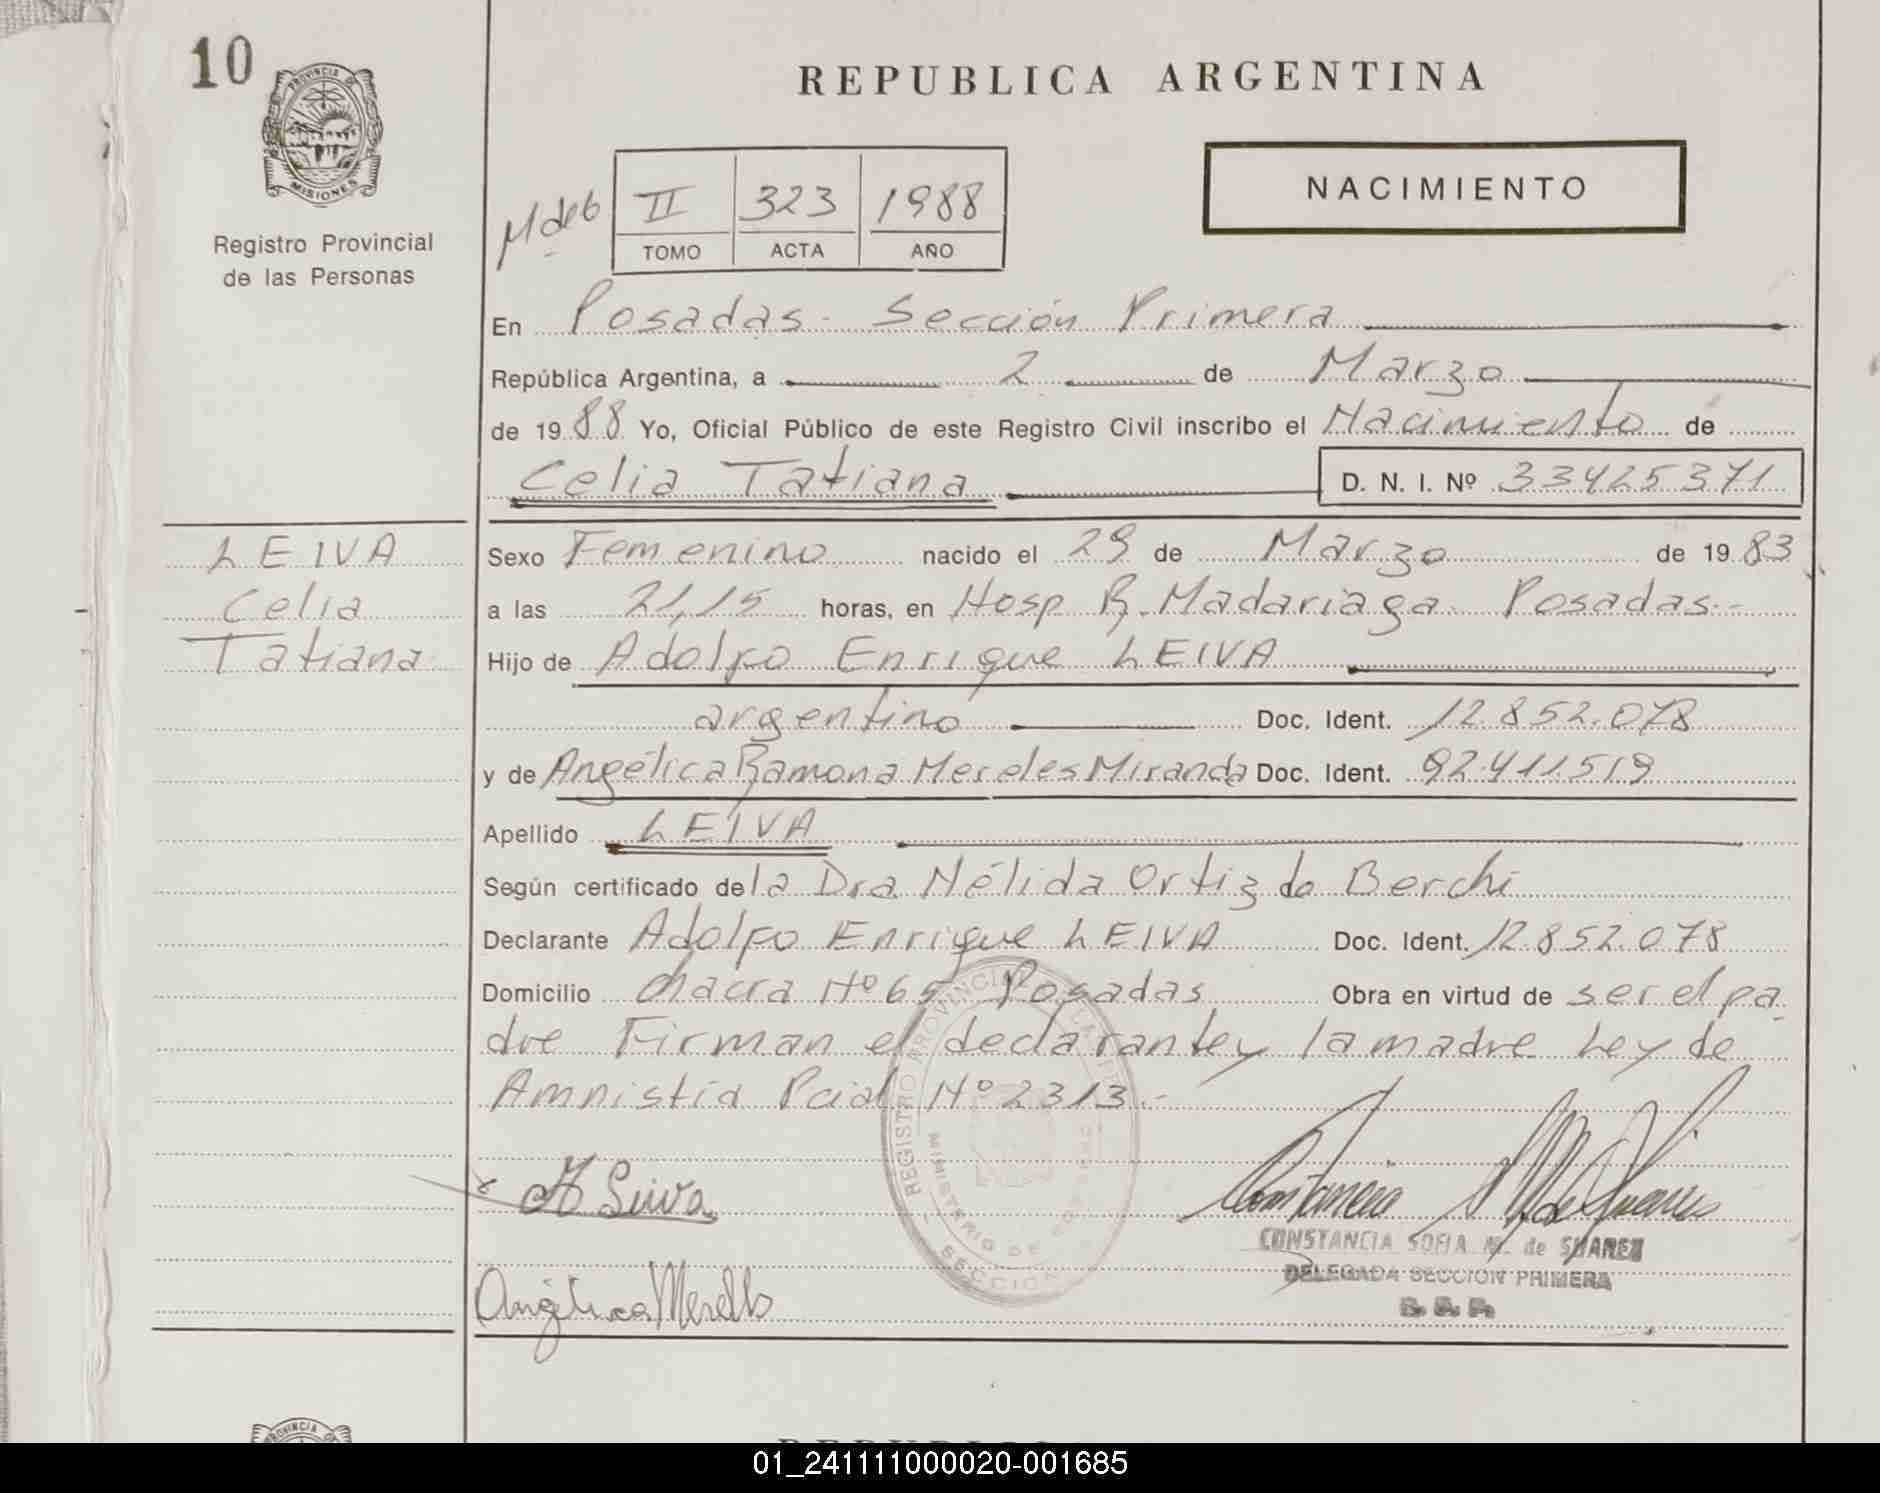 10
PROVINCIA DE
MISIONES
Registro Provincial
de las Personas
REPUBLICA ARGENTINA
NACIMIENTO
II 323 1988
TOMO ACTA AÑO
En Posadas - Sección Primera
República Argentina, a 2 de Marzo
de 1988 Yo, Oficial Público de este Registro Civil inscribo el Nacimiento de
Celia Tatiana D. N. I. Nº 33425371
LEIVA
Celia
Tatiana
Sexo Femenino nacido el 29 de Marzo de 1983
a las 21,15 horas, en Hosp R. Madariaga Posadas.-
Hijo de Adolfo Enrique LEIVA
argentino Doc. Ident. 12.852.078
y de Angélica Ramona Mereles Miranda Doc. Ident. 92.411.519
Apellido LEIVA
Según certificado de la Dra Nélida Ortiz de Berchi
Declarante Adolfo Enrique LEIVA Doc. Ident. 12.852.078
Domicilio Chacra Nº 65 Posadas Obra en virtud de ser el pa
dre Firman el declarante y la madre Ley de
Amnistía Pcial Nº 2313.-
REGISTRO PROVINCIAL DE LAS
MINISTERIO DE
SECCION
A Leiva
Angélica
CONSTANCIA SOFIA M. de SUAREZ
DELEGADA SECCION PRIMERA
REPUBLICA
01_241111000020-001685